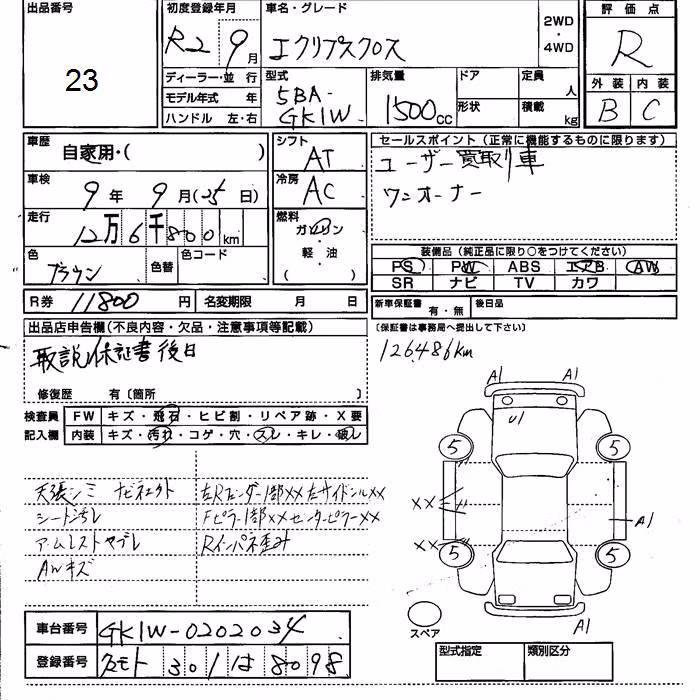 出品番号 23
初度登録年月 R2 9月
車名・グレード エクリプスクロス
2WD・4WD
評価点 R
外装 B 内装 C
ディーラー・並行
モデル年式 年
ハンドル 左・右
型式 5BA-GK1W
排気量 1500cc
ドア 形状
定員 人
積載 kg
車歴 自家用・( )
シフト AT
セールスポイント(正常に機能するものに限ります)
ユーザー買取り車
ワンオーナー
車検 9年 9月(25日)
冷房 AC
走行 12万6千800km
燃料 ガソリン・軽油( )
色 ブラウン 色替 色コード
装備品(純正品に限り○をつけてください)
PS PW ABS エアB AW
SR ナビ TV カワ
R券 11800円 名変期限 月 日
新車保証書 有・無 後日品
(保証書は事務局へ提出して下さい)
出品店申告欄(不良内容・欠品・注意事項等記載)
126,486km
取説 保証書 後日
修復歴 有〔箇所 〕
検査員 FW キズ・飛石・ヒビ割・リペア跡・X要
記入欄 内装 キズ・汚れ・コゲ・穴・スレ・キレ・破レ
A1 A1
U1
5 5
天張シミ ナビネエクト 左Rフェンダー1部XX 左サイドシルXX
シート汚レ Fピラー1部XX センターピラーXX
アームレストヤブレ Rインパネ歪み
AWキズ
XX
A1
XX
5 5
A1
スペア
車台番号 GK1W-0202034
登録番号 301は8098
型式指定 類別区分